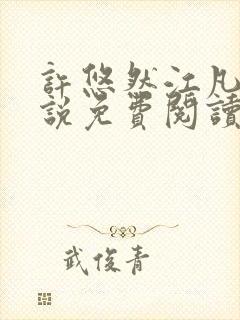 許悠然江凡
說免費閱讀
武俊青